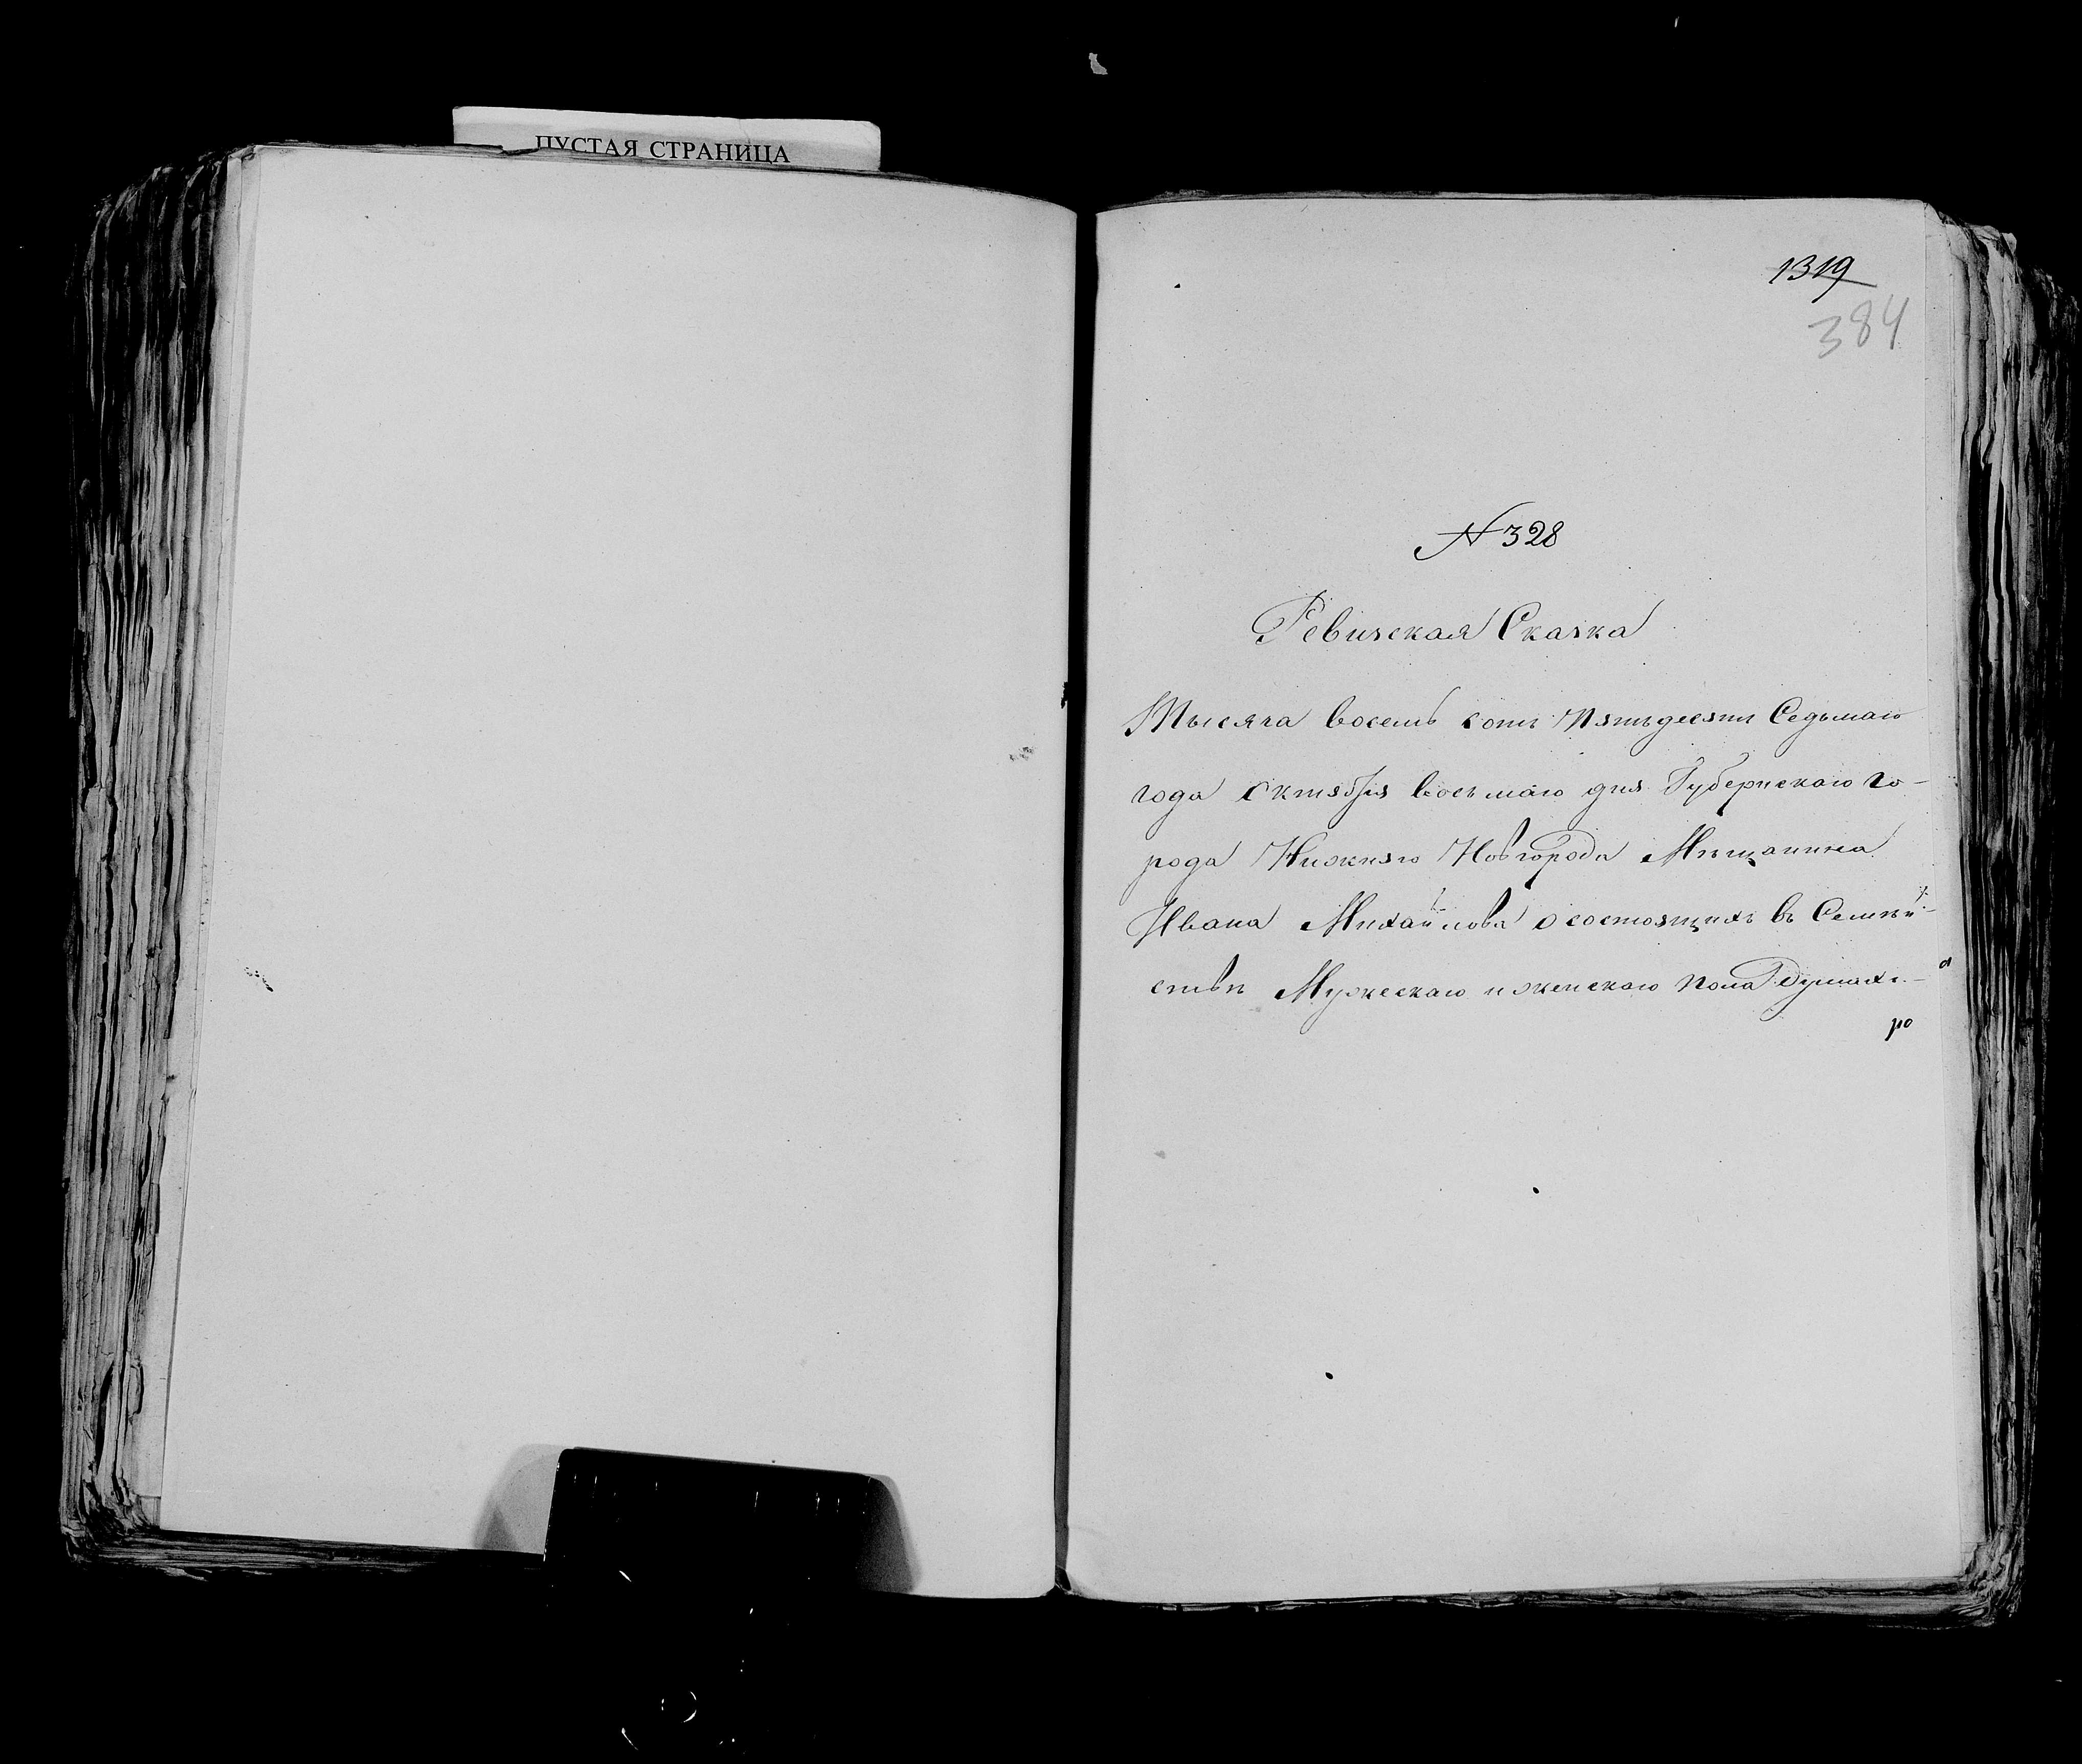 ПУСТАЯ СТРАНИЦА
1319
384
№ 328
Ревизская Сказка
Тысяча восемь сотъ Пятьдесятъ Седьмаго
года Октября восьмаго дня Губернскаго го-
рода Нижняго Новгорода Мѣщанина
Ивана Михайлова о состоящихъ въ Семѣй-
ствѣ Мужескаго и женскаго пола душахъ.